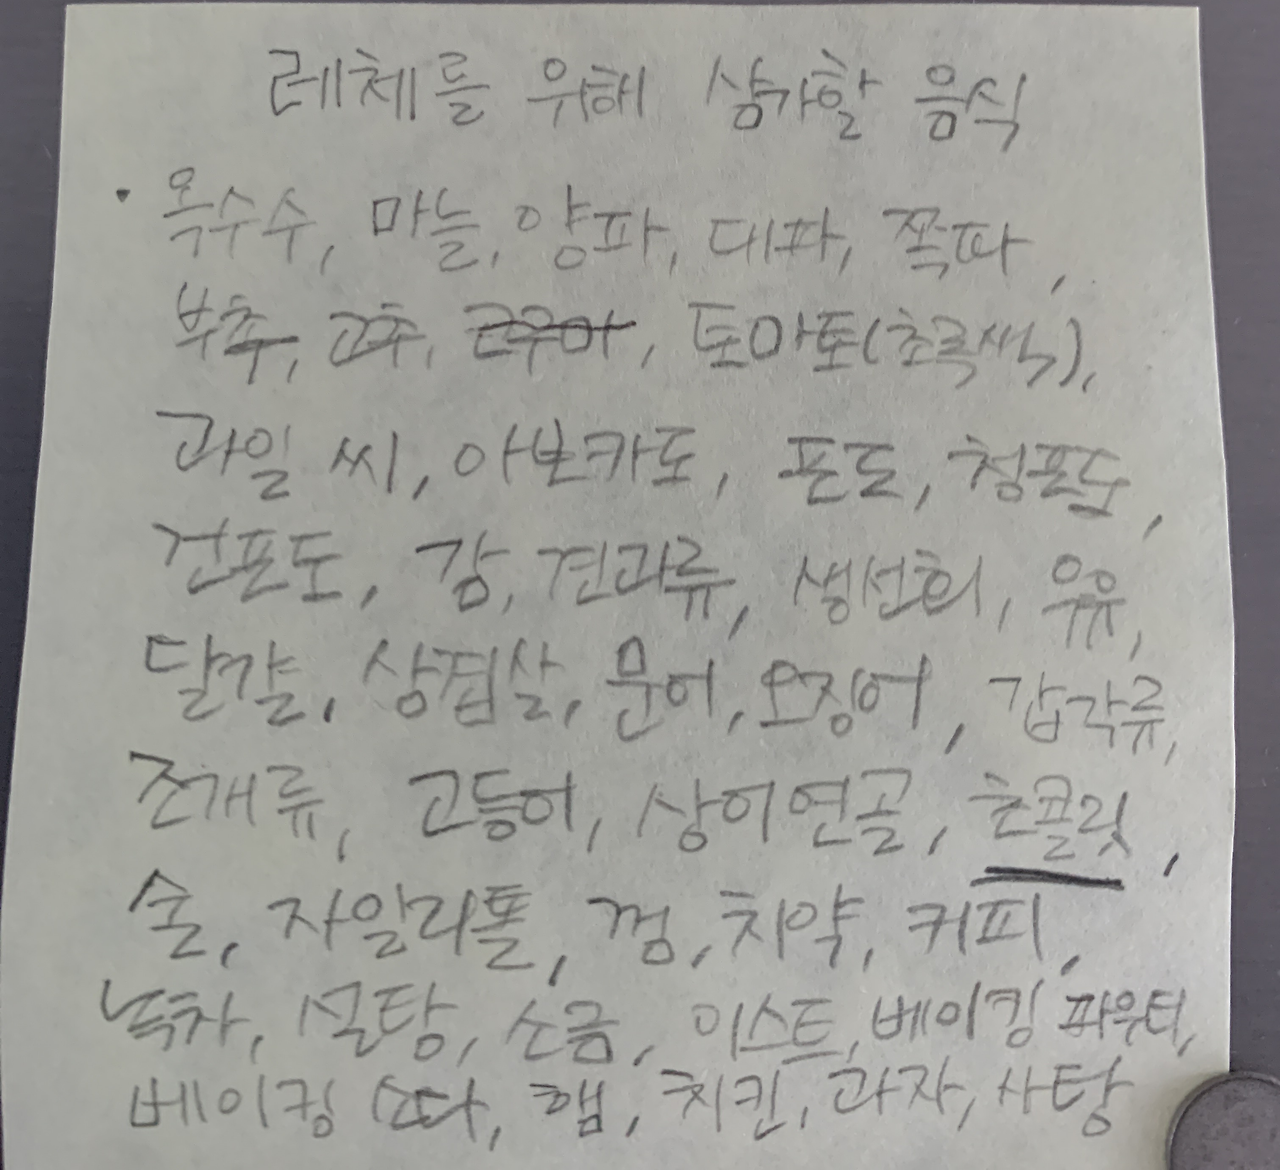 레체를 위해 삼가할 음식
· 옥수수, 마늘, 양파, 대파, 쪽파,
부추, 고추, 토마토(초록색),
과일 씨, 아보카도, 포도, 청포도,
건포도, 감, 견과류, 생선회, 우유,
달걀, 삼겹살, 문어, 오징어, 갑각류,
조개류, 고등어, 상어연골, 초콜릿,
술, 자일리톨, 껌, 치약, 커피,
녹차, 설탕, 소금, 이스트, 베이킹 파우더,
베이킹 소다, 햄, 치킨, 과자, 사탕